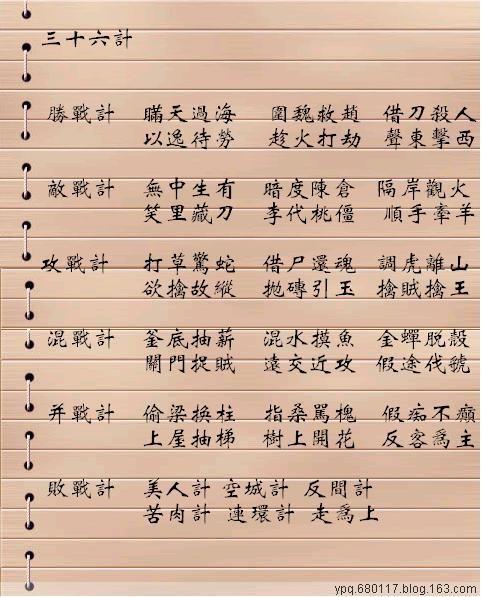 三十六計
勝戰計 瞞天過海 圍魏救趙 借刀殺人
以逸待勞 趁火打劫 聲東擊西
敵戰計 無中生有 暗度陳倉 隔岸觀火
笑里藏刀 李代桃僵 順手牽羊
攻戰計 打草驚蛇 借尸還魂 調虎離山
欲擒故縱 拋磚引玉 擒賊擒王
混戰計 釜底抽薪 混水摸魚 金蟬脱殼
關門捉賊 遠交近攻 假途伐號
并戰計 偷梁換柱 指桑罵槐 假痴不癲
上屋抽梯 樹上開花 反客爲主
敗戰計 美人計 空城計 反間計
苦肉計 連環計 走爲上
ypq.680117.blog.163.com